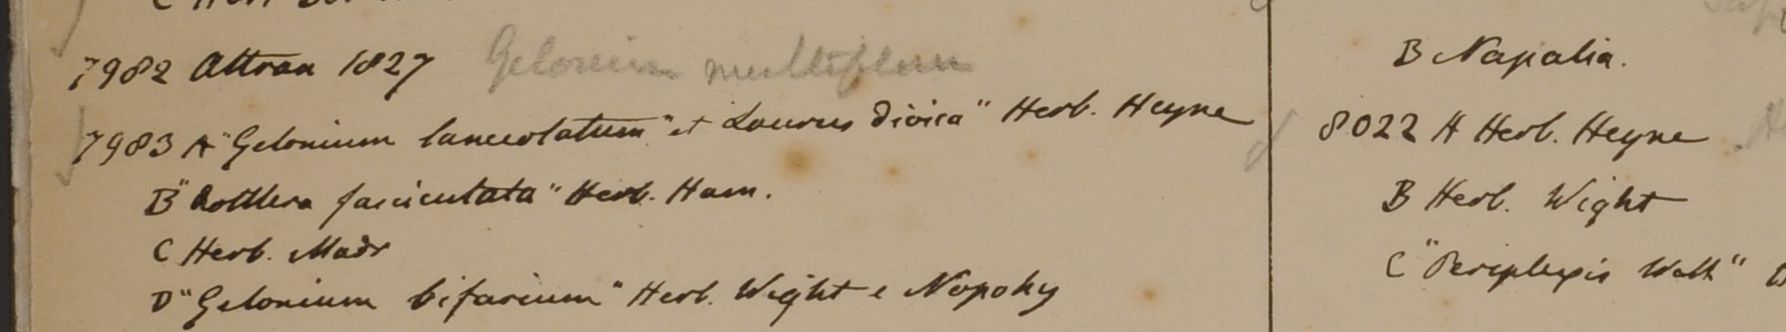 7982 Attran 1827 Gelonium multiflorum
7983 A "Gelonium lanceolatum" et Laurus dioica" Herb. Heyne
B "Rottlera fasciculata" Herb. Ham.
C Herb. Madr
D "Gelonium bifarium" Herb. Wight e Nopoky
B Napalia.
8022 A Herb. Heyne
B Herb. Wight
C "Periplexis Wall"